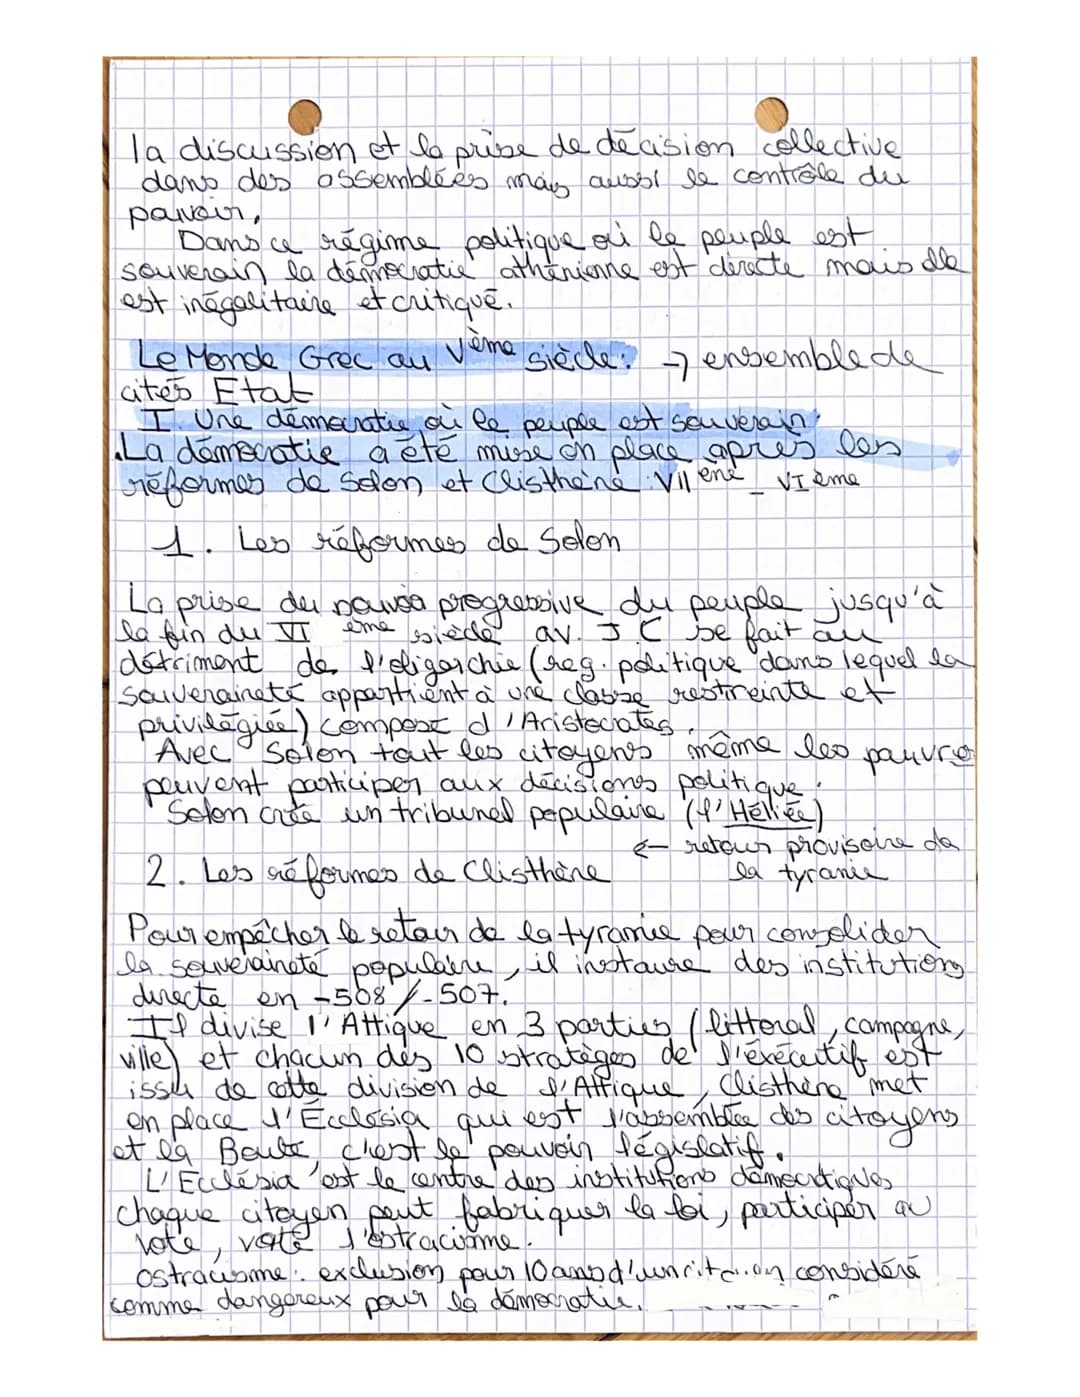 la discussion et la prise de décision collective
dans des assemblées mais aussi le contrôle du
pouvoir.
Dans ce régime politique où le peuple est
souverain la démocratie athénienne est directe mais elle
est inégalitaire et critiqué.
Le Monde Grec au Vème siècle: → ensemble de
cités Etat
I. Une démocratie où le peuple est souverain:
La démocratie a été mise en place après les
réformes de Solon et Clisthène: VIIème - VIème
1. Les réformes de Solon
La prise du pouvoir progressive du peuple jusqu'à
la fin du VI ème siècle av. J C se fait au
détriment de l'oligarchie (reg. politique dans lequel la
souveraineté appartient à une classe restreinte et
privilégiée) composé d'Aristocrates.
Avec Solon tout les citoyens même les pauvre
peuvent participer aux décisions politique.
Solon crée un tribunal populaire (l'Héliée)
← retour provisoire de
2. Les réformes de Clisthène la tyranie
Pour empêcher le retour de la tyrannie pour consolider
la souveraineté populaire, il instaure des institutions
directe en -508/-507.
Il divise l'Attique en 3 parties (littoral, campagne,
ville) et chacun des 10 stratèges de l'éxécutif est
issu de cette division de l'Attique, Clisthène met
en place l'Écclésia qui est l'assemblée des citoyens
et la Boulé c'est le pouvoir législatif.
L'Ecclésia est le centre des institutions démocratiques
chaque citoyen peut fabriquer la loi, participer au
vote, voté l'ostracisme.
Ostracisme: exclusion pour 10 ans d'un citoyen considéré
comme dangereux pour la démocratie.